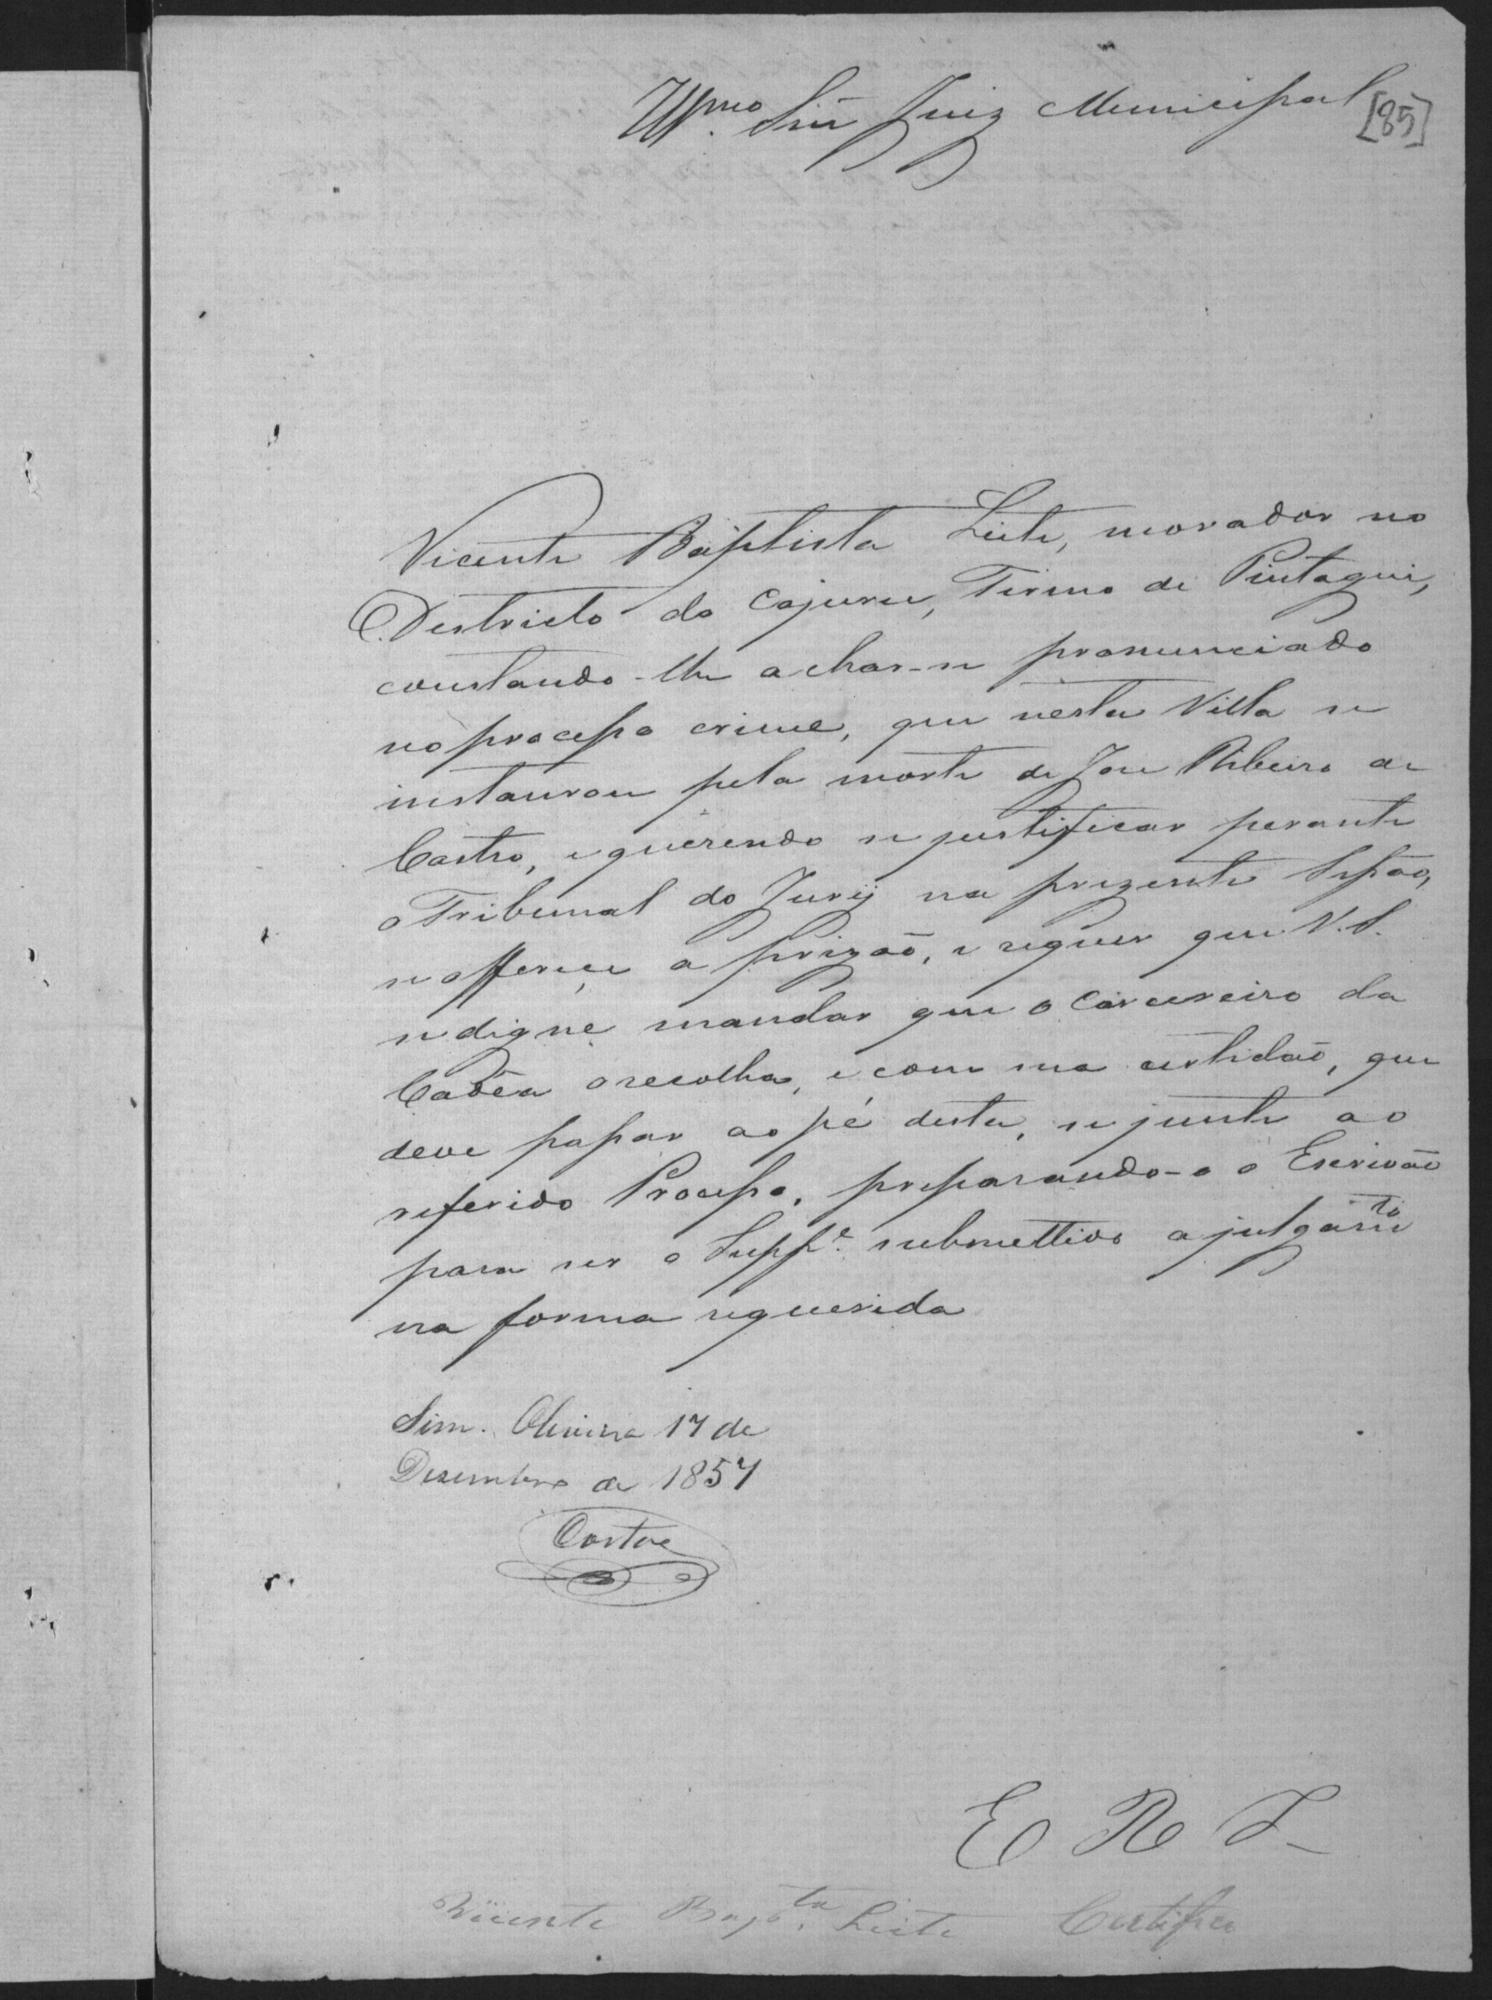 Illmo. Snr Juiz Municipal
[85]
Vicente Baptista Leite, morador no
Destricto do Cajuru, Termo de Pintagui,
constando-lhe achar-se pronunciado
no processo crime, que nesta Villa se
instaurou pela morte de Jose Ribeiro de
Castro, e querendo se justificar perante
o Tribunal do Jury na prezente Sessão,
se offerece a prizão, e requer que V. S.
se digne mandar que o Carcereiro da
Cadêa o recolha, e com sua certidão, que
deve passar ao pé desta, se junte ao
referido Processo, preparando-o o Escrivão
para ser o Suppe. submettido a julgamto
na forma requerida
Sim. Oliveira 17 de
Dezembro de 1857
Costa
E R
Vicente Bapta. Leite Certifico